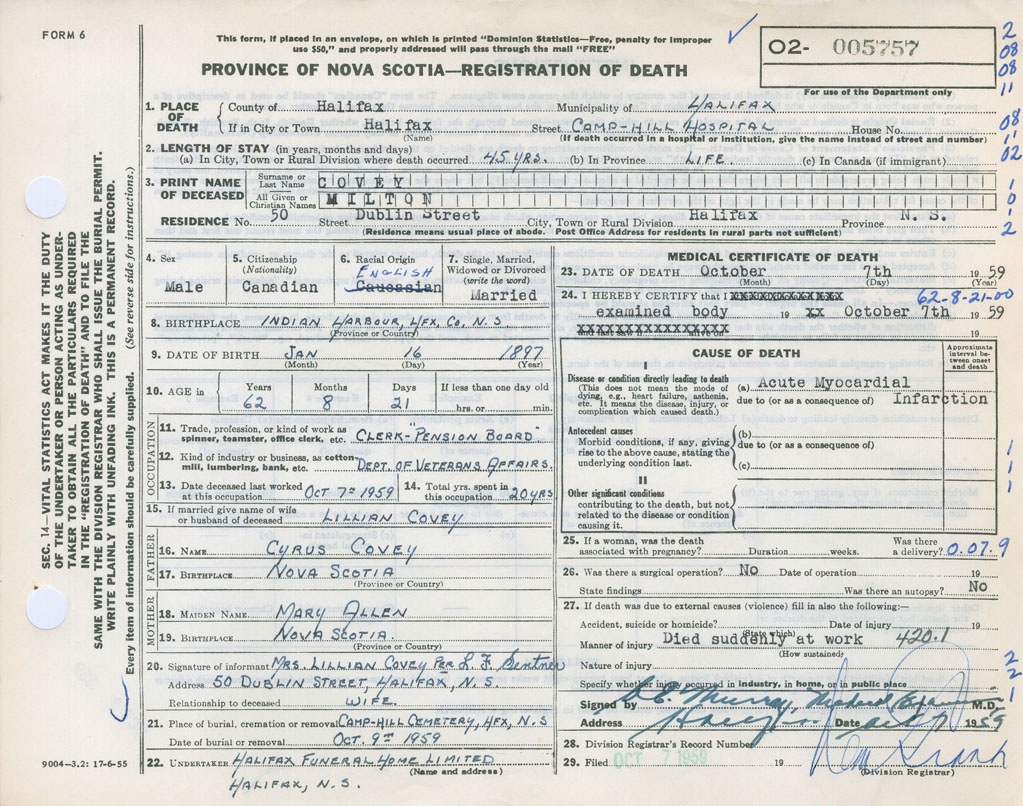 FORM 6
This form, if placed in an envelope, on which is printed "Dominion Statistics—Free, penalty for improper
use $50," and properly addressed will pass through the mail "FREE"
PROVINCE OF NOVA SCOTIA—REGISTRATION OF DEATH
O2- 005757
For use of the Department only
2
08
08
11
08
1
02
1
0
1
2
SEC. 14—VITAL STATISTICS ACT MAKES IT THE DUTY
OF THE UNDERTAKER OR PERSON ACTING AS UNDER-
TAKER TO OBTAIN ALL THE PARTICULARS REQUIRED
IN THE "REGISTRATION OF DEATH" AND TO FILE THE
SAME WITH THE DIVISION REGISTRAR WHO SHALL ISSUE THE BURIAL PERMIT.
WRITE PLAINLY WITH UNFADING INK. THIS IS A PERMANENT RECORD.
Every item of information should be carefully supplied. (See reverse side for instructions.)
1. PLACE OF DEATH County of Halifax Municipality of HALIFAX
If in City or Town Halifax Street CAMP-HILL HOSPITAL House No.
(Name) (If death occurred in a hospital or institution, give the name instead of street and number)
2. LENGTH OF STAY (in years, months and days)
(a) In City, Town or Rural Division where death occurred 45 YRS. (b) In Province LIFE. (c) In Canada (if immigrant)
3. PRINT NAME OF DECEASED Surname or Last Name COVEY
All Given or Christian Names MILTON
RESIDENCE No. 50 Street Dublin Street City, Town or Rural Division Halifax Province N. S.
(Residence means usual place of abode. Post Office Address for residents in rural parts not sufficient)
4. Sex Male
5. Citizenship (Nationality) Canadian
6. Racial Origin ENGLISH Caucasian
7. Single, Married, Widowed or Divorced (write the word) Married
8. BIRTHPLACE INDIAN HARBOUR, HFX, CO, N.S
(Province or Country)
9. DATE OF BIRTH JAN 16 1897
(Month) (Day) (Year)
10. AGE in Years 62 Months 8 Days 21 If less than one day old hrs. or min.
OCCUPATION
11. Trade, profession, or kind of work as spinner, teamster, office clerk, etc. CLERK-"PENSION BOARD"
12. Kind of industry or business, as cotton-mill, lumbering, bank, etc. DEPT. OF VETERANS AFFAIRS.
13. Date deceased last worked at this occupation OCT 7TH 1959 14. Total yrs. spent in this occupation 20 YRS
15. If married give name of wife or husband of deceased LILLIAN COVEY
FATHER
16. NAME CYRUS COVEY
17. BIRTHPLACE NOVA SCOTIA
(Province or Country)
MOTHER
18. MAIDEN NAME MARY ALLEN
19. BIRTHPLACE NOVA SCOTIA.
(Province or Country)
20. Signature of informant MRS. LILLIAN COVEY PER L. F. Sentner
Address 50 DUBLIN STREET, HALIFAX, N. S.
Relationship to deceased WIFE.
21. Place of burial, cremation or removal CAMP-HILL CEMETERY, HFX, N.S
Date of burial or removal OCT. 9TH 1959
22. UNDERTAKER HALIFAX FUNERAL HOME LIMITED
(Name and address)
HALIFAX, N. S.
9004—3.2: 17-6-55
MEDICAL CERTIFICATE OF DEATH
23. DATE OF DEATH October 7th 19 59
(Month) (Day) (Year)
62-8-21-00
24. I HEREBY CERTIFY that I XXXXXXXXXXXXX
examined body 19 xx October 7th 19 59
CAUSE OF DEATH
Approximate interval between onset and death
I
Disease or condition directly leading to death (a) Acute Myocardial
(This does not mean the mode of dying, e.g., heart failure, asthenia, etc. It means the disease, injury, or complication which caused death.) due to (or as a consequence of) Infarction
Antecedent causes
Morbid conditions, if any, giving rise to the above cause, stating the underlying condition last.
(b)
due to (or as a consequence of)
(c)
II
Other significant conditions
contributing to the death, but not related to the disease or condition causing it.
1
1
1
25. If a woman, was the death associated with pregnancy? Duration weeks. Was there a delivery? 0.07.9
26. Was there a surgical operation? No Date of operation 19
State findings Was there an autopsy? No
27. If death was due to external causes (violence) fill in also the following:—
Accident, suicide or homicide? Date of injury 19
(State which)
Manner of injury Died suddenly at work 420.1
(How sustained)
Nature of injury
Specify whether injury occurred in industry, in home, or in public place
2
2
1
Signed by Murray, Medical M.D.
Address Date Oct 7 1959
28. Division Registrar's Record Number
29. Filed OCT 7 1959 19
(Division Registrar)